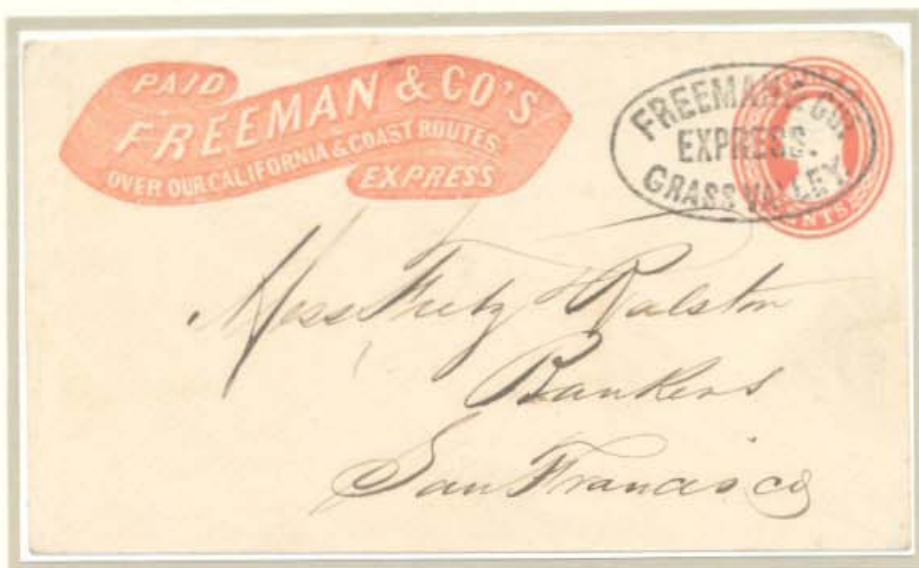 PAID
FREEMAN & CO'S
OVER OUR CALIFORNIA & COAST ROUTES
EXPRESS
FREEMAN & CO.
EXPRESS.
GRASS VALLEY
CENTS
Mess Fretz & Ralston
Bankers
San Francisco